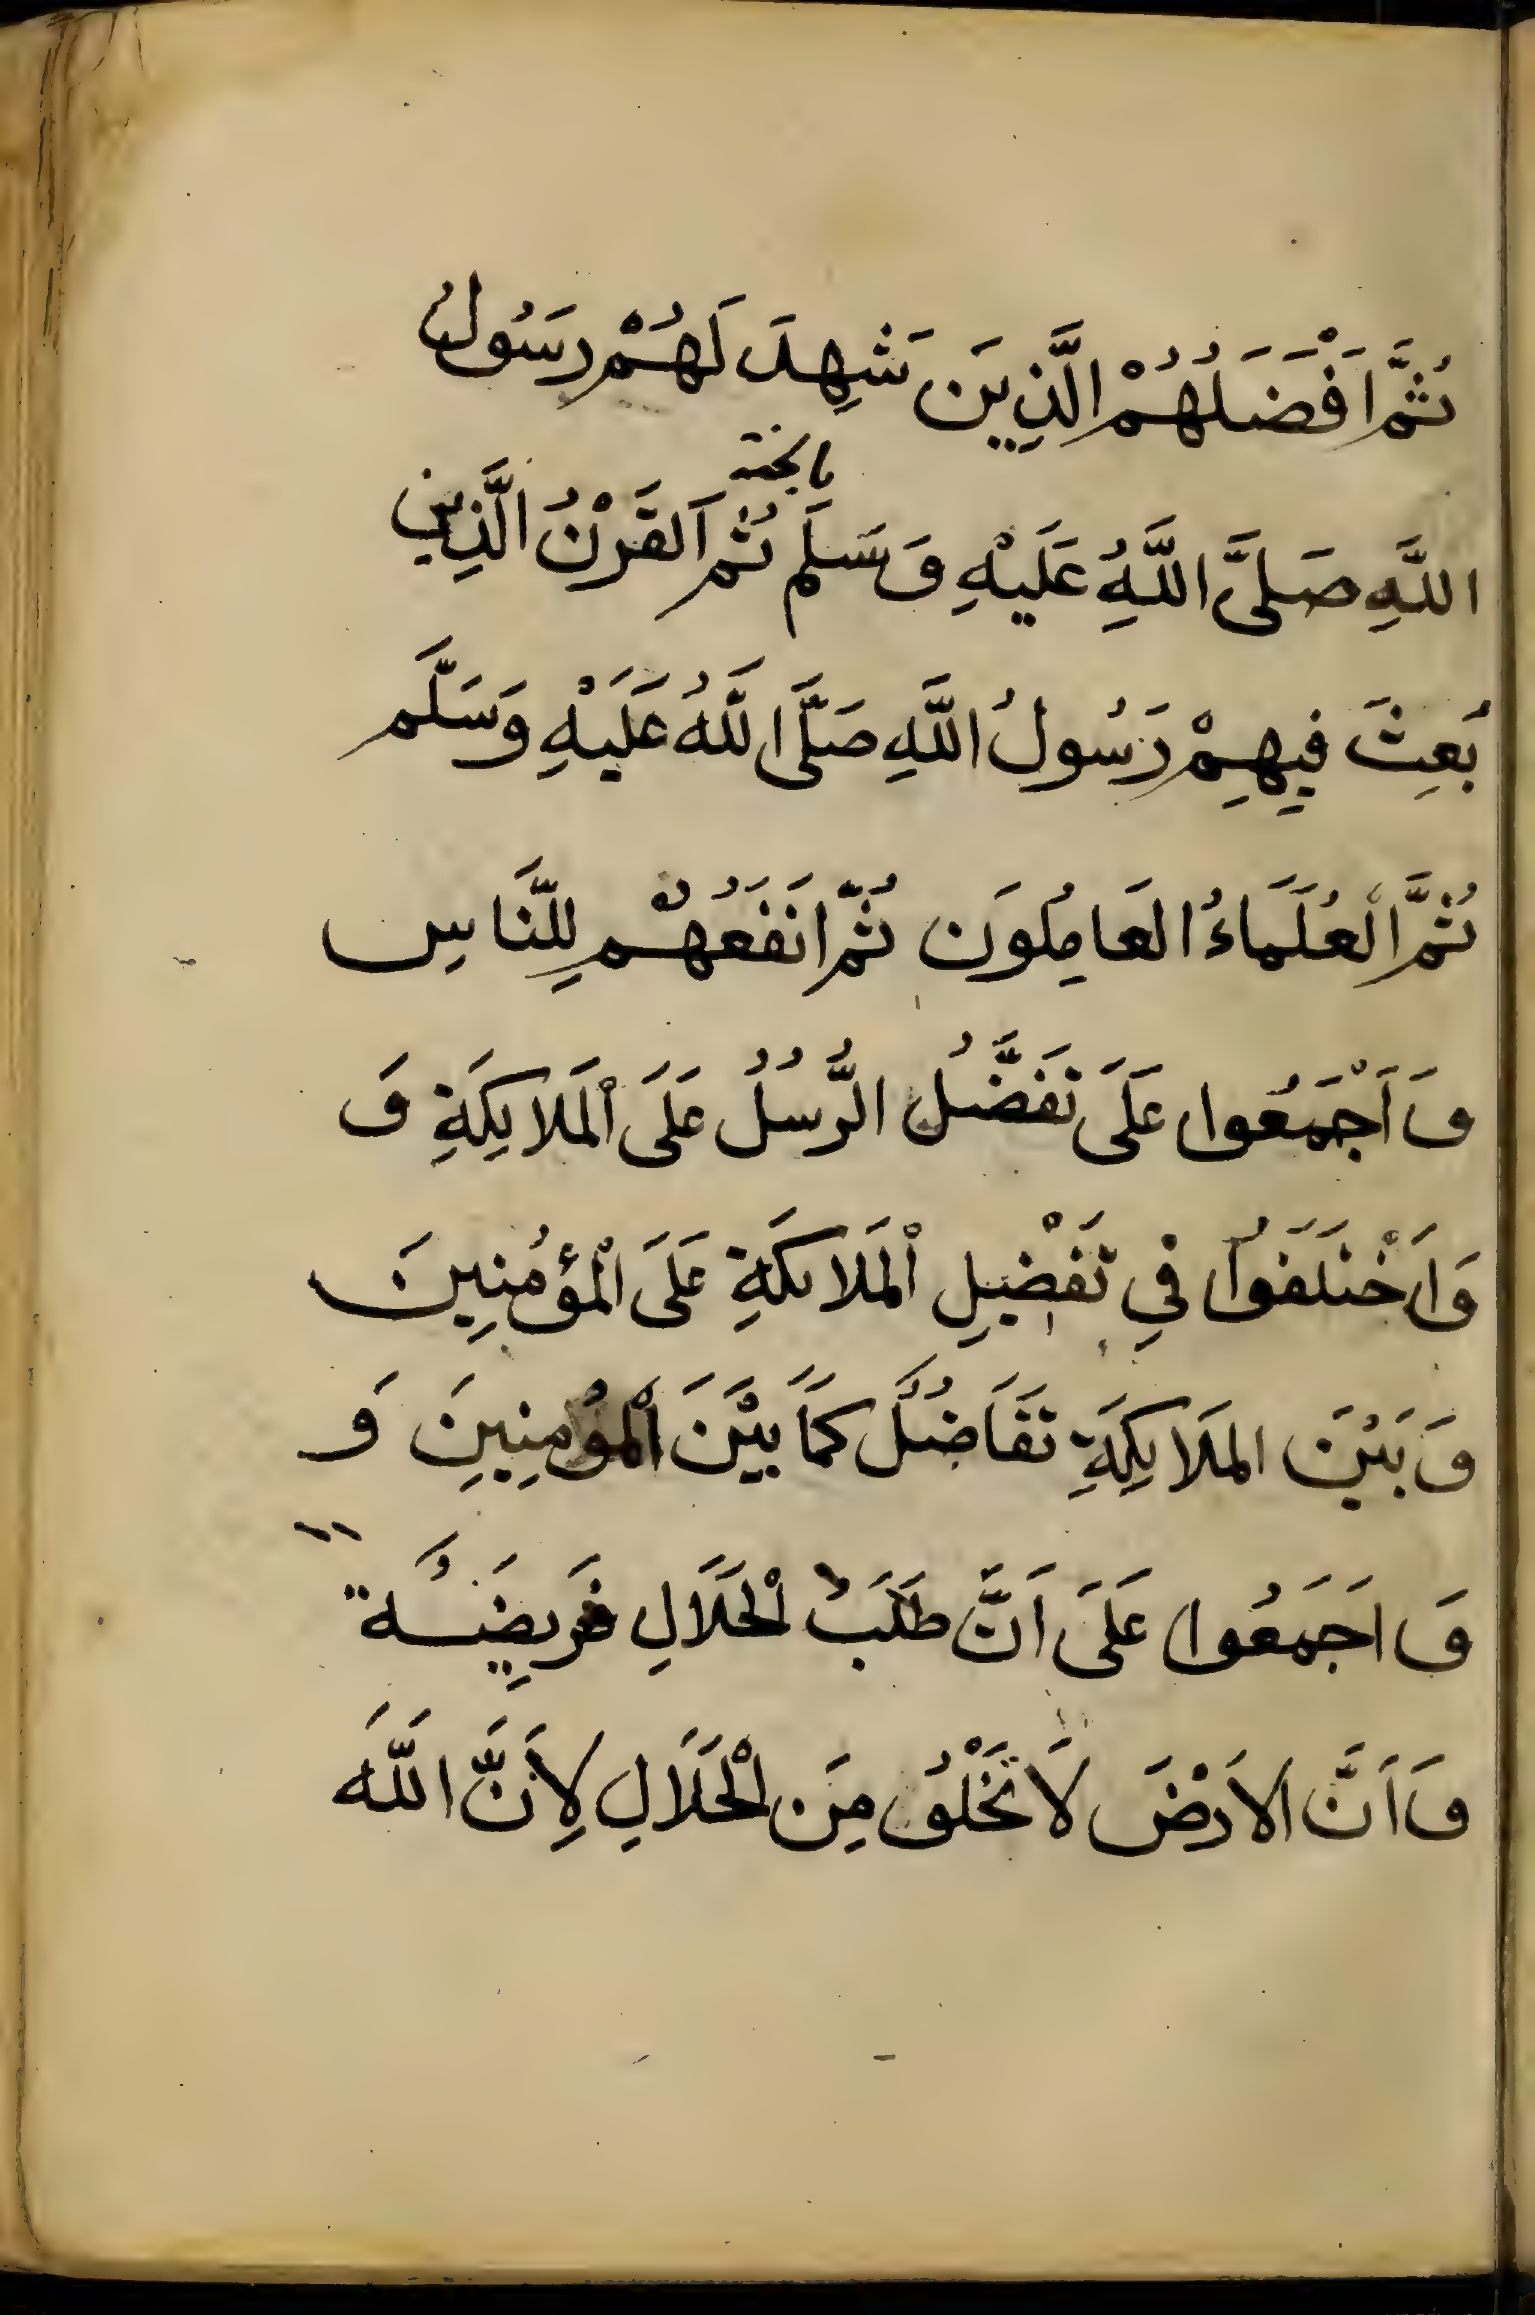 ثُمَّ اَفْضَلُهُمْ الَّذِينَ شَهِدَ لَهُمْ رَسُولُ
بالجنة
اللَّهِ صَلَّى اللَّهُ عَلَيْهِ وَسَلَّم ثُمَ القَرْنُ الَّذِينَ
بُعِثَ فِيهِمْ رَسُولُ اللَّهِ صَلَّى اللَّهُ عَلَيْهِ وَسَلَّم
ثُمَّ الْعُلَمَاءُ العَامِلُونَ ثُمَّ اَنْفَعُهُمْ لِلنَّاسِ
وَ اَجْمَعُوا عَلَى تَفَضُّلِ الرُّسُلُ عَلَى اْلمَلَايِكَةِ وَ
وَاَخْتَلَفُوا فِي تَفْضِيلِ اْلمَلَايكَةِ عَلَى الْمُؤمِنِينَ
وَ بَيْنَ المَلَايِكَةِ تَفَاضُلُ كَمَا بَيْنَ اْلمُؤمِنِينَ وَ
وَ اَجَمَعُوا عَلَى اَنَّ طَلَبَ الْحَلَالِ فَرِيضَةُ
وَ اَنَّ الاَرْضَ لَا تَخْلُو مِنَ الْحَلَالِ لِاَنَّ اللَّهَ